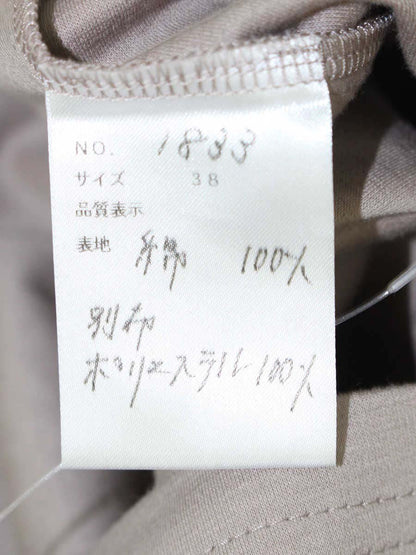 NO. 1833
サイズ 38
品質表示
表地 綿 100%
別布
ポリエステル100%